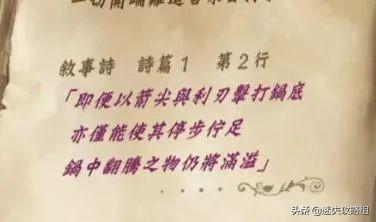 敘事詩 詩篇1 第2行
「即便以箭尖與利刃擊打鍋底
亦僅能使其停步佇足
鍋中翻騰之物仍將滿溢」
头条 @迷失攻略组